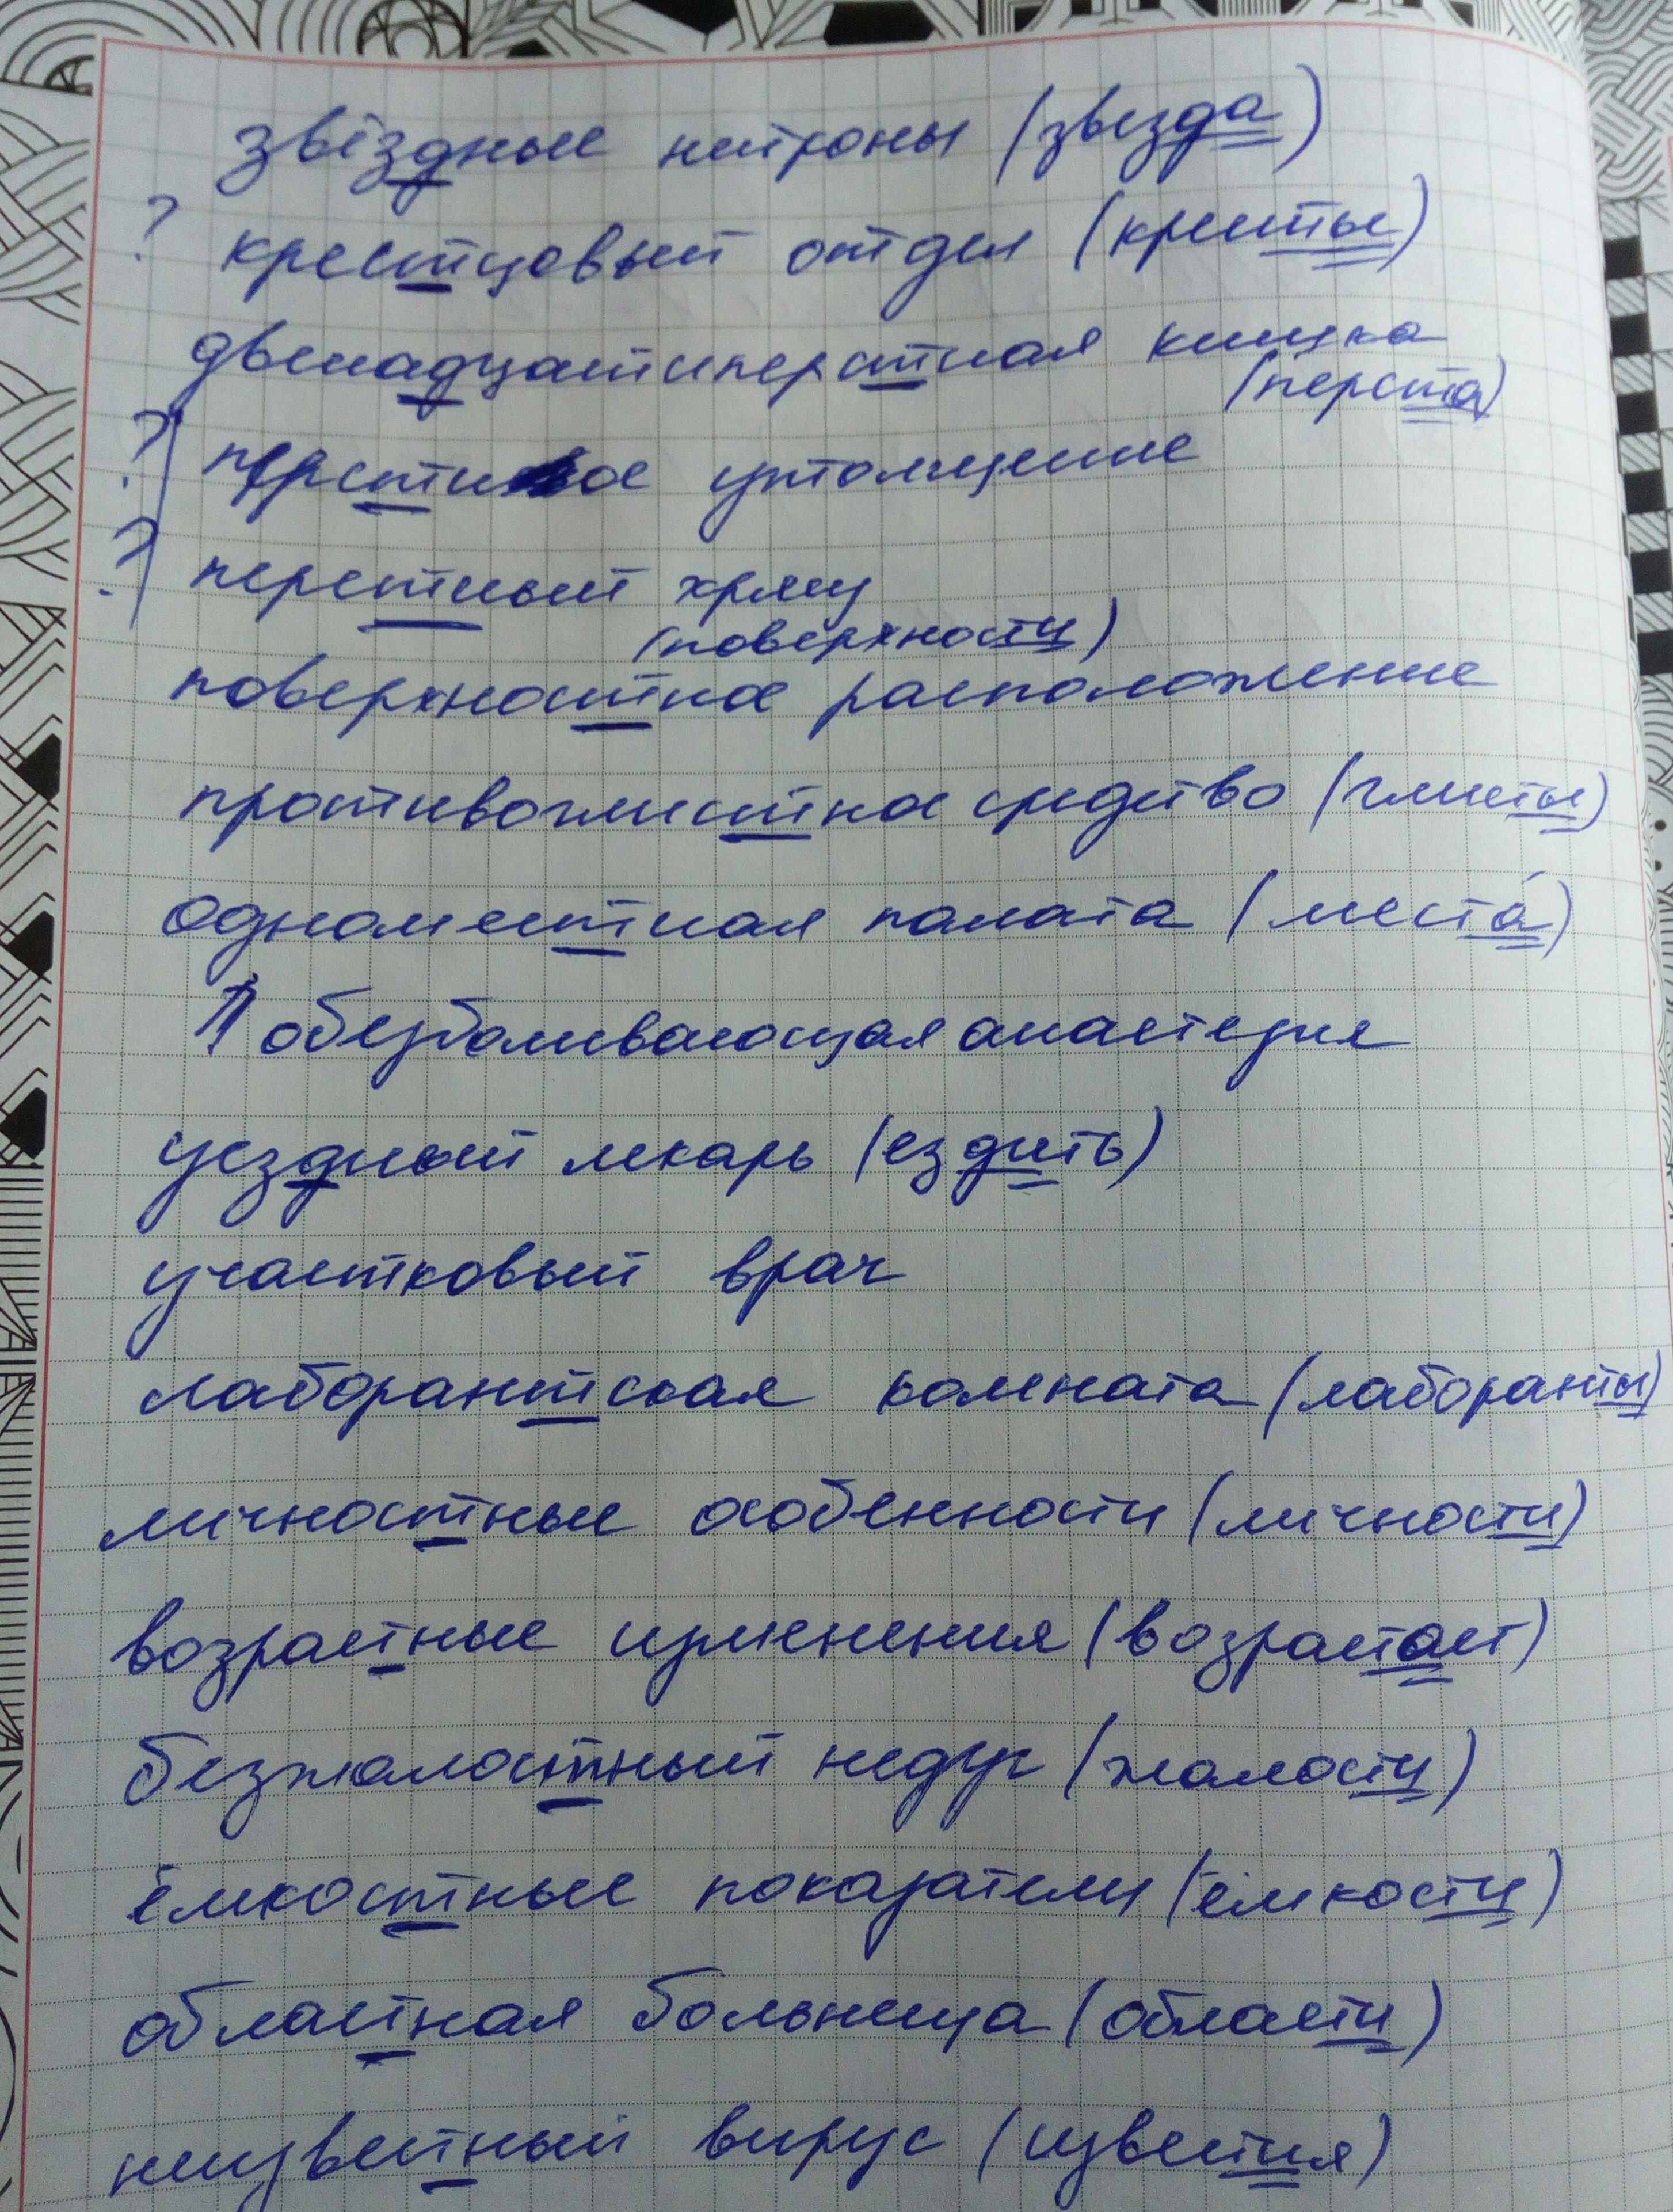 звёздные нейроны (звезда)
? крестцовый отдел (кресты)
двенадцатиперстная кишка
(перста)
? перстное утолщение
? перстный хрящ
(поверхности)
поверхностное расположение
противоглистное средство (глисты)
одноместная палата (места́)
обезболивающая анастезия
уездный лекарь (ездить)
участковый врач
лаборантская комната (лаборанты)
личностные особенности (личности)
возрастные изменения (возрастает)
безжалостный недуг (жалости)
ёмкостные показатели (ёмкости)
областная больница (области)
неизвестный вирус (известия)